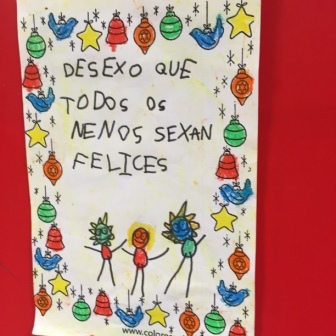 DESEXO QUE
TODOS OS
NENOS SEXAN
FELICES
www.colore